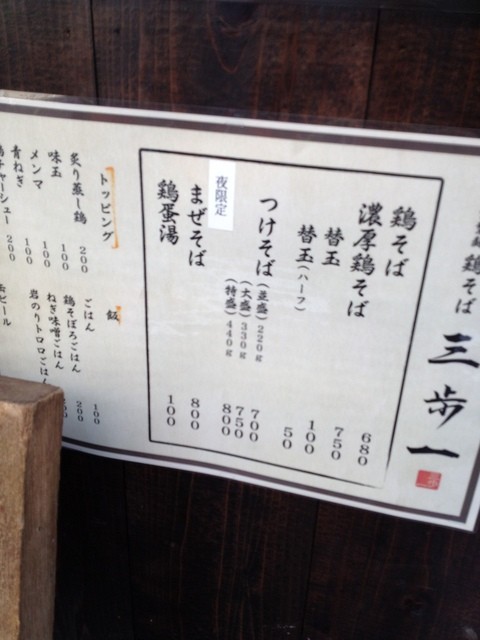 鶏そば
三歩一
鶏そば 680
濃厚鶏そば 750
替玉 100
替玉(ハーフ) 50
つけそば(並盛)220g 700
(大盛)330g 750
(特盛)440g 800
夜限定
まぜそば 800
鶏蛋湯 100
トッピング
炙り蒸し鶏 200
味玉 100
メンマ 100
青ねぎ 100
チャーシュー 200
飯
ごはん 100
鶏そぼろごはん 200
ねぎ味噌ごはん
岩のりトロロごはん
ビール